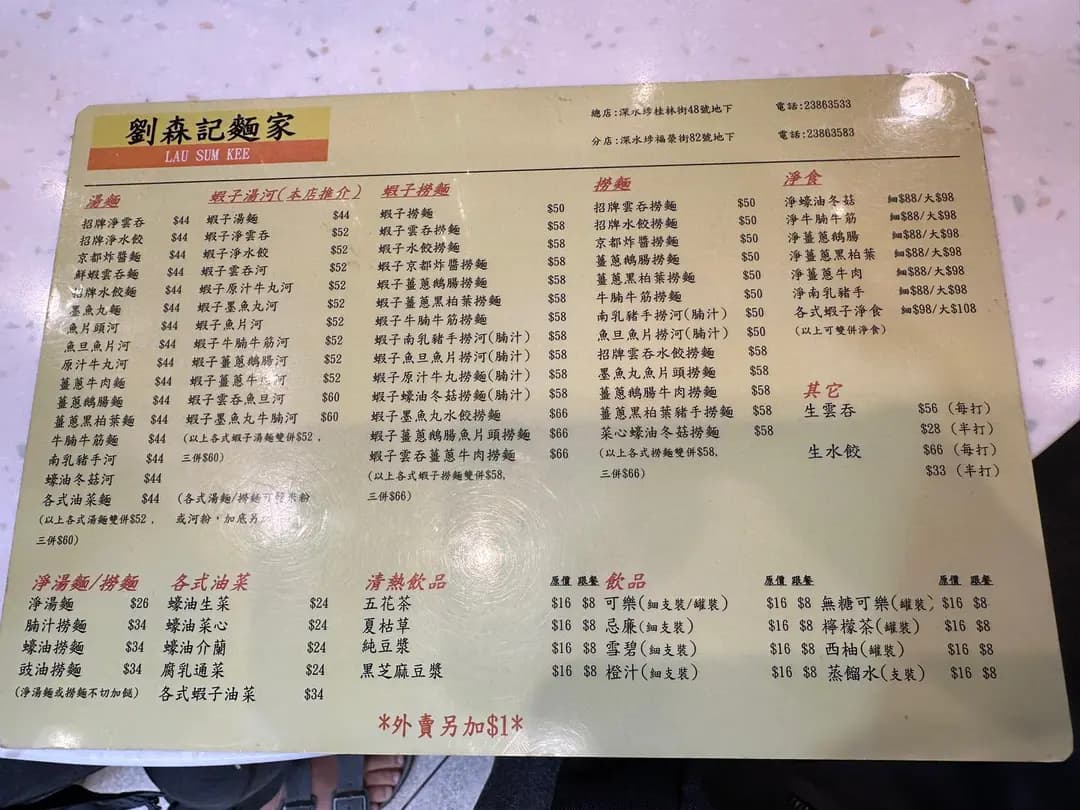 劉森記麵家
LAU SUM KEE
總店:深水埗桂林街48號地下 電話:23863533
分店:深水埗福榮街82號地下 電話:23863583
湯麵
招牌淨雲吞 $44
招牌淨水餃 $44
京都炸醬麵 $44
鮮蝦雲吞麵 $44
招牌水餃麵 $44
墨魚丸麵 $44
魚片頭河 $44
魚旦魚片河 $44
原汁牛丸河 $44
薑蔥牛肉麵 $44
薑蔥鵝腸麵 $44
薑蔥黑柏葉麵 $44
牛腩牛筋麵 $44
南乳豬手河 $44
蠔油冬菇河 $44
各式油菜麵 $44
(以上各式湯麵雙併$52，
三併$60)
蝦子湯河(本店推介)
蝦子湯麵 $44
蝦子淨雲吞 $52
蝦子淨水餃 $52
蝦子雲吞河 $52
蝦子原汁牛丸河 $52
蝦子墨魚丸河 $52
蝦子魚片河 $52
蝦子牛腩牛筋河 $52
蝦子薑蔥鵝腸河 $52
蝦子薑蔥牛 河 $52
蝦子雲吞魚旦河 $60
蝦子墨魚丸牛腩河 $60
(以上各式蝦子湯麵雙併$52，
三併$60)
(各式湯麵/撈麵可 米粉
或河粉，加底另
蝦子撈麵
蝦子撈麵 $50
蝦子雲吞撈麵 $58
蝦子水餃撈麵 $58
蝦子京都炸醬撈麵 $58
蝦子薑蔥鵝腸撈麵 $58
蝦子薑蔥黑柏葉撈麵 $58
蝦子牛腩牛筋撈麵 $58
蝦子南乳豬手撈河(腩汁) $58
蝦子魚旦魚片撈河(腩汁) $58
蝦子原汁牛丸撈麵(腩汁) $58
蝦子蠔油冬菇撈麵(腩汁) $58
蝦子墨魚丸水餃撈麵 $66
蝦子薑蔥鵝腸魚片頭撈麵 $66
蝦子雲吞薑蔥牛肉撈麵 $66
(以上各式蝦子撈麵雙併$58,
三併$66)
撈麵
招牌雲吞撈麵 $50
招牌水餃撈麵 $50
京都炸醬撈麵 $50
薑蔥鵝腸撈麵 $50
薑蔥黑柏葉撈麵 $50
牛腩牛筋撈麵 $50
南乳豬手撈河(腩汁) $50
魚旦魚片撈河(腩汁) $50
招牌雲吞水餃撈麵 $58
墨魚丸魚片頭撈麵 $58
薑蔥鵝腸牛肉撈麵 $58
薑蔥黑柏葉豬手撈麵 $58
菜心蠔油冬菇撈麵 $58
(以上各式撈麵雙併$58,
三併$66)
淨食
淨蠔油冬菇 細$88/大$98
淨牛腩牛筋 細$88/大$98
淨薑蔥鵝腸 細$88/大$98
淨薑蔥黑柏葉 細$88/大$98
淨薑蔥牛肉 細$88/大$98
淨南乳豬手 細$88/大$98
各式蝦子淨食 細$98/大$108
(以上可雙併淨食)
其它
生雲吞 $56 (每打)
$28 (半打)
生水餃 $66 (每打)
$33 (半打)
淨湯麵/撈麵
淨湯麵 $26
腩汁撈麵 $34
蠔油撈麵 $34
豉油撈麵 $34
(淨湯麵或撈麵不切加餸)
各式油菜
蠔油生菜 $24
蠔油菜心 $24
蠔油介蘭 $24
腐乳通菜 $24
各式蝦子油菜 $34
清熱飲品 原價 跟餐
五花茶 $16 $8
夏枯草 $16 $8
純豆漿 $16 $8
黑芝麻豆漿 $16 $8
飲品 原價 跟餐 原價 跟餐
可樂(細支裝/罐裝) $16 $8 無糖可樂(罐裝) $16 $8
忌廉(細支裝) $16 $8 檸檬茶(罐裝) $16 $8
雪碧(細支裝) $16 $8 西柚(罐裝) $16 $8
橙汁(細支裝) $16 $8 蒸餾水(支裝) $16 $8
*外賣另加$1*